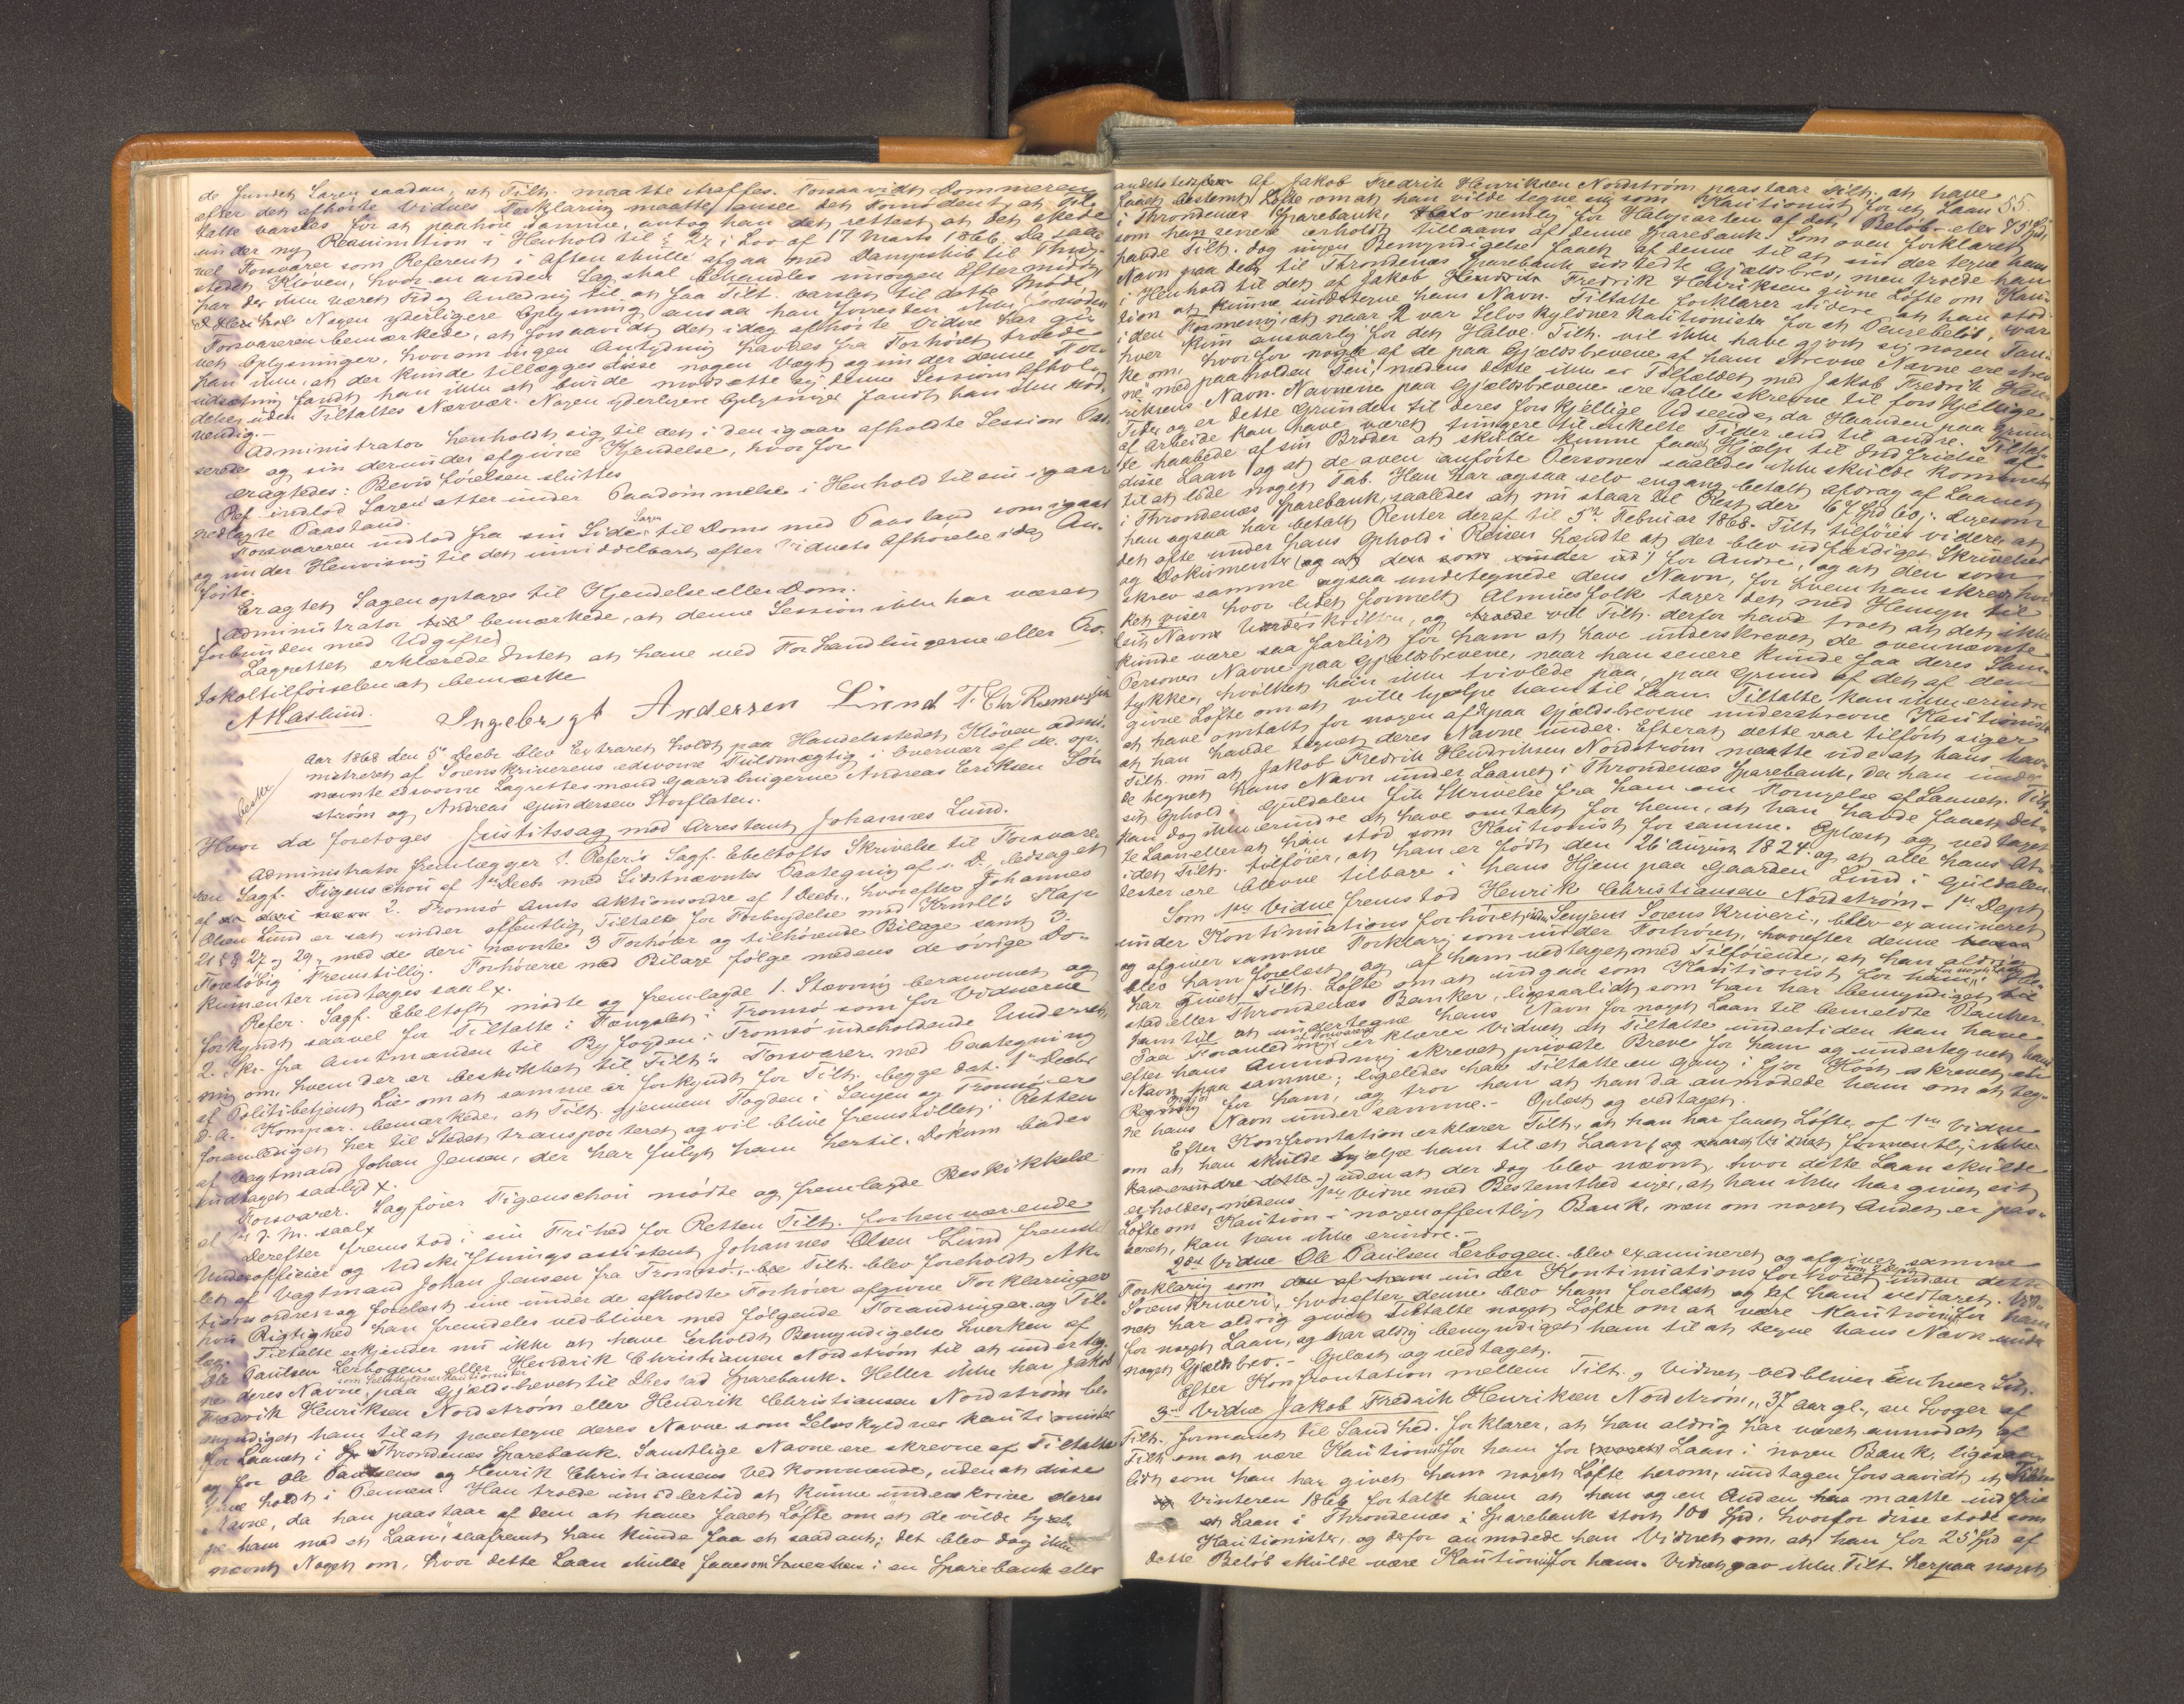 de fundet Sagen saadan, at Tilth. maatte straffes. Forsaavidt Dommeren
efter det afhørte Vidnes Forklaring maatte ansee det fornødent, at Til-
talte varsles for at paahøre samme, antog han det rettest at det skede
under ny Reassumtion i Henhold til § 22 i Lov af 17 Marts 1866. Da saa-
vel Forsvarer som Referent i Aften skulle afgaa med Dampskib til Thing-
stedet Kløven, hvor en anden Sag skal behandles imorgen Eftermiddag,
har der ikke været Tid og Anledning til at faa Tilt. varslet til dette Møde,
Nogen yderligere Oplysning ansaa han forresten ikke
Forsvareren bemærkede, at forsaavidt det idag afhørte Vidne har gi-
vet Oplysninger, hvorom ingen Antydning havdes fra Forhøret troede
han ikke, at der kunde tillægges disse nogen Vægt og under denne For-
udsætning fandt han ikke at burde modsætte sig denne Session afhol-
des uden Tiltaltes Nærvær. Nogen yderligere Oplysninger fandt han ikke nød-
vendig.-
Administrator henholdt sig til det i den igaar afholdte Session Pas-
serede og sin derunder afgivne Kjendelse, hvorfor
eragtedes: Bevisførelsen sluttes
Ref. indlod Sagen atter under Paadømmelse i Henhold til sin igaar
nedlagte Paastand.
Forsvareren indlod fra sin Side Sagen til Doms med Paastand som igaar
og under Henvisning til det umiddelbart efter Vidnets Afhørelse idag An-
førte.
Eragtet Sagen optages til Kjendelse eller Dom.
Administrator bemærkede, at denne Session ikke har været
forbunden med Udgifter.
Lagrettet erklærede Intet at have ved Forhandlingerne eller Pro-
tokoltilførselen at bemærke
A Haslund. Ingebrigt Andersen Lind T. Chr Rasmussen
Aar 1868 den 5te Decbr blev Extraret holdt paa Handelsstedet Kløven admi-
nistreret af Sorenskriverens edsvorne Fuldmægtig i Overvær af de op-
nævnte edsvorne Lagrettesmænd Gaardbrugerne Andreas Eriksen Lön
strøm og Andreas Gundersen Storflaten.
Hvor da foretoges Justitssag mod Arrestant Johannes Lund.
Administrator fremlægger 1. Refer's Sagf. Ebeltofts Skrivelse til Forsvare-
ren Sagf. Figenschou af 1ste Decbr med Sidstnævntes Paategning af s. D. ledsaget
af 2. Tromsø Amts Aktionsordre af 1 Decbr., hvorefter Johannes
Olsen Lund er sat under offentlig Tiltale for Forbrydelse mod Krmll's Kap
21 §§ 27 og 29, med de deri nævnte 3 Forhører og tilhørende Bilage samt 3.
Foreløbig Fremstilling. Forhørene med Bilage følge medens de øvrige Do-
kumenter indtages saal.x.
Refer. Sagf. Ebeltoft mødte og fremlagde 1. Stævning berammet og
forkyndt saavel for Tiltalte i Fængslet i Tromsø som for Vidnerne
2. Skr. fra Amtmanden til Byfogden i Tromsø indeholdende Underret-
ning om, hvem der er beskikket til Tilt's Forsvarer med Paategning
af Politibetjent Lie om at samme er forkyndt for Tilt. begge dat. 1ste Decbr
d. A. Kompar. bemærkede, at Tilt. gjennem Fogden i Senjen og Tromsø er
foranlediget her til Stedet transporteret og vil blive fremstillet i Retten
af Vagtmand Johan Jensen, der har fulgt ham hertil. Dokum bades
indtaget saalyd.x.
Forsvarer. Sagfører Figenschou mødte og fremlagde Beskikkelse
af 1ste d. M. saal.x
Derefter fremstod i sin Frihed for Retten Tilt. forhenværende
Underofficier og Udskiftningsassistent Johannes Olsen Lund fremstil-
let af Vagtmand Johan Jensen fra Tromsø. Tilt. blev foreholdt Ak-
tionsordren og forelæst sine under de afholdte Forhører afgivne Forklaringer
hvis Rigtighed han fremdeles vedbliver med følgende Forandringer og Til-
læg. Tiltalte erkjender nu ikke at have erholdt Bemyndigelse hverken af
Ole Paulsen Lerbogen eller Hendrik Christiansen Nordstrøm til at underteg-
ne deres Navne som Selvskyldnerkautionister paa Gjældsbrevet til Ibestad Sparebank. Heller ikke har Jakob
Fredrik Henriksen Nordstrøm eller Hendrik Christiansen Nordstrøm be-
myndiget ham til at paategne deres Navne som Selvskyldner kautionister
for Laanet i Throndenæs Sparebank. Samtlige Navne ere skrevne af Tiltalte
og for Ole Paulsens og Henrik Christiansens Vedkommende, uden at disse
have holdt i Pennen. Han troede imidlertid at kunne underskrive deres
Navne, da han paastaar af dem at have faaet Løfte om at de vilde hjæl-
pe ham med et Laan, saafremt han kunde faa et saadant; det blev dog ikke
nævnt Noget om, hvor dette Laan skulde faaes om hverken i en Sparebank eller
55
andetsteds. Af Jakob Fredrik Henriksen Nordstrøm paastaar Tilt. at have
faaet bestemt Løfte om at han vilde tegne sig som Kautionist for et Laan
i Throndenæs Sparebank, nemlig for Halvparten af det Beløb eller 75 Spd,
som han senere erholdt tillaans af denne Sparebank. Som oven forklaret
havde Tilt. dog ingen Bemyndigelse faaet af denne til at undertegne hans
Navn paa det til Throndenæs Sparebank udstedte Gjældsbrev, men troede han
i Henhold til det af Jakob Fredrik Henriksen givne Løfte om Kau-
tion at kunne undertegne hans Navn. Tiltalte forklarer videre at han stod
i den Formening, at naar 2 var Selvskyldner kautionister for et Pengebeløb, var
hver kun ansvarlig for det Halve. Tilt. vil ikke have gjort sig nogen Tan-
ke om, hvorfor nogle af de paa Gjældsbrevene af ham skrevne Navne ere skrev-
ne "med paaholden Pen", medens dette ikke er Tilfældet med Jakob Fredrik Hen-
riksens Navn. Navnene paa Gjældsbrevene ere alle skrevne til forskjellige
Tider og er dette Grunden til deres forskjellige Udseende, da Haanden paa Grund
af Arbeide kan have været tungere til enkelte Tider end til andre. Tiltal-
te haabede af sin Broder at skulde kunne faaet Hjælp til Indfrielse af
disse Laan og at de oven anførte Personer saaledes ikke skulde kommet
til at lide noget Tab. Han har ogsaa selv engang betalt Afdrag af Laanet
i Throndenæs Sparebank, saaledes at nu staar til Rest der 67 Spd 60 s. ligesom
han ogsaa har betalt Renter deraf til 5te Februar 1868. Tilt. tilføier videre at
det ofte under hans Ophold i Reisen hændte at der blev udfærdiget Skrivelser
og Dokumenter for Andre, og at den som
skrev samme ogsaa undertegnede dens Navn, for hvem han skrev hvil-
ket viser hvor lidet formelt Almuesfolk tager det med Hensyn til
sin Navns Underskrift, og vil Tilt. derfor havd troet at det ikke
kunde være saa farligt for ham at have underskrevet de ovennævnte
Personer Navne paa Gjældsbrevene, naar han senere kunde faa deres Sam-
tykke, hvilket han ikke tvivlede paa, paa Grund af det af dem
givne Løfte om at ville hjælpe ham til Laan. Tiltalte kan ikke erindre
at have omtalt for nogen af de paa Gjældsbrevene underskrevne Kautionister
at han havde tegnet deres Navne under. Efterat dette var tilført siger
Tilt. nu at Jakob Fredrik Hendriksen Nordstrøm maatte vide at hans hav-
de tegnet hans Navn under Laanet i Throndenæs Sparebank, da han under
sit Ophold i Guldalen fik Skrivelse fra ham om Fornyelse af Laanet. Tilt.
kan dog ikke erindre at have omtalt for ham, at han havde faaet det-
te Laan eller at han stod som Kautionist for samme. Oplæst og vedtaget
idet Tilt. tilføier, at han er født den 26 August 1824 og at alle hans At-
tester ere blevne tilbage i hans Hjem paa Gaarden Lund i Guldalen.
Som 1ste Vidne fremstod Henrik Christiansen Nordstrøm - 1ste Dept
under Kontinuationsforhøret inden Senjens Sorenskriveri, blev examineret
og afgiver samme Forklaring som under Forhøret, hvorefter denne
blev ham forelæst og af ham vedtaget med Tilføiende, at han aldrig
har givet Tilt. Løfte om at indgaa som Kautionist for ham for noget Laan i Ibe-
stad eller Throndenæs Banker, ligesaalidt som han har bemyndiget
ham til at undertegne hans Navn for noget Laan til bemeldte Banker.
Paa Foranledning af Forsvarer erklærer Vidnet at Tiltalte undertiden kan have
efter hans Anmodning skrevet private Breve for ham og undertegnet hans
Navn paa samme; ligeledes har Tiltalte en gang i fjor Høst skrevet en
Regning for ham, og tror han at han da anmodede ham om at teg-
ne hans Navn under samme.- Oplæst og vedtaget.
Efter Konfrontation erklærer Tilt. at han har faaet Løfte af 1ste Vidne
om at han skulde hjælpe ham til et Laan
uden at der dog blev nævnt, hvor dette Laan skulde
erholdes, medens 1ste Vidne med Bestemthed siger, at han ikke har givet sit
Løfte om Kaution i nogen offentlig Bank, men om noget Andet er pas-
seret, kan han ikke erindre.-
2det Vidne Ole Paulsen Lerbogen blev examineret og afgiver samme
Forklaring som under Kontinuationsforhøret som 2 Dept. inden dette
Sorenskriveri, hvorefter denne blev ham forelæst og af ham vedtaget. Vid-
net har aldrig givet Tiltalte noget Løfte om at være Kautionist for ham
for noget Laan, og har aldrig bemyndiget ham til at tegne hans Navn under
noget Gjældsbrev.- Oplæst og vedtaget.
Efter Konfrontation mellem Tilt. og Vidnet vedbliver Enhver Sit.
3die Vidne Jakob Fredrik Henriksen Nordstrøm, 37 Aar gl., en Svoger af
Tilt. formanet til Sandhed. forklarer, at han aldrig har været anmodet af
Tilt. om at være Kautionist for ham for Laan i nogen Bank, ligesaa-
lidt som han har givet ham noget Løfte herom, undtagen forsaavidt at Tiltalte
Vinteren 1866 fortalte ham at han og en Anden maatte indfrie
et Laan i Throndenæs Sparebank stort 100 Spd, hvorfor disse stode som
Kautionister, og derfor anmodede han Vidnet om, at han for 25 Spd af
dette Beløb skulde være Kautionist for ham. Vidnet gav ikke Tilt. herpaa noget